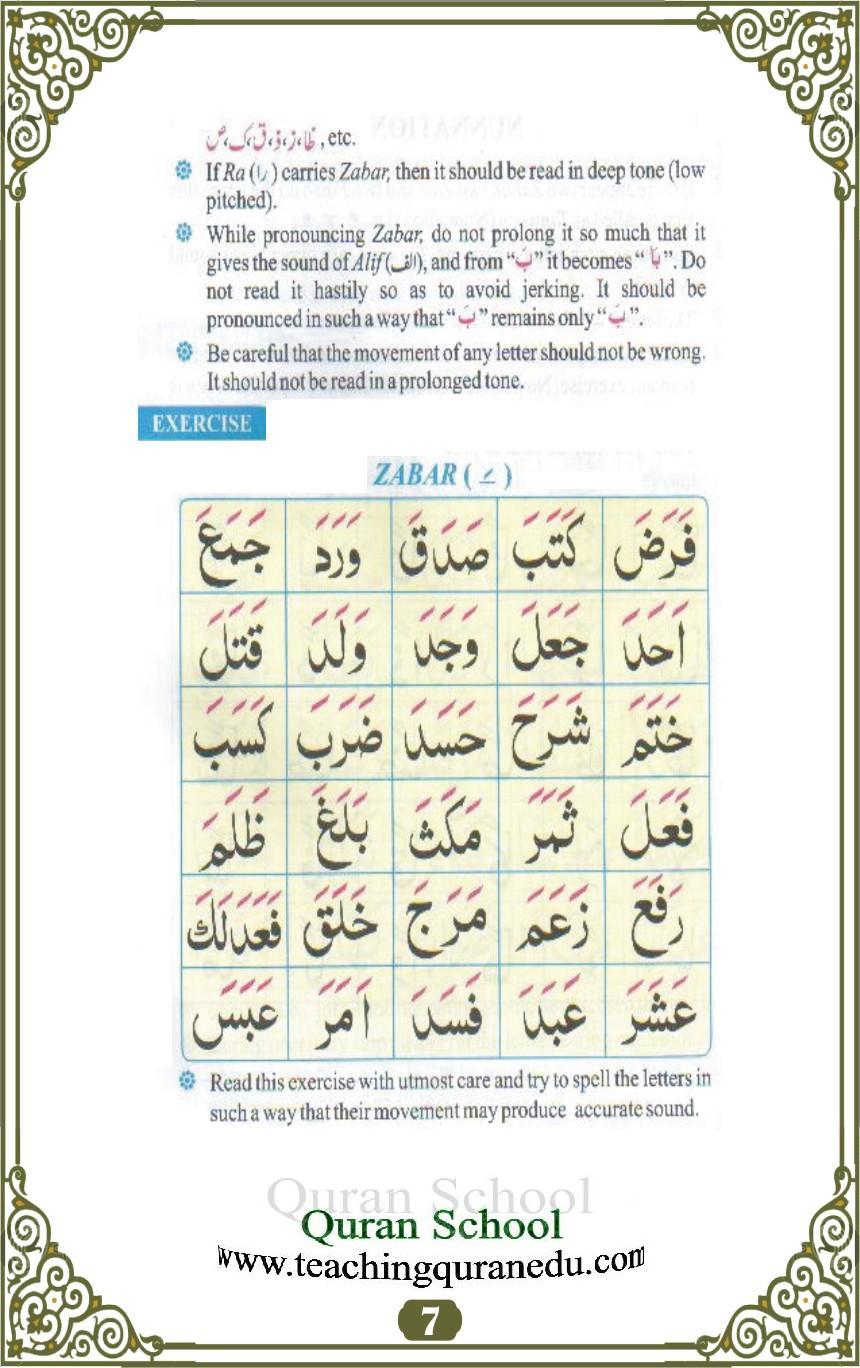 ظا،ز،ذ،ق،ک،ص , etc.
If Ra (را) carries Zabar, then it should be read in deep tone (low
pitched).
While pronouncing Zabar, do not prolong it so much that it
gives the sound of Alif (الف), and from “بَ” it becomes “بَا”. Do
not read it hastily so as to avoid jerking. It should be
pronounced in such a way that “بَ” remains only “بَ”.
Be careful that the movement of any letter should not be wrong.
It should not be read in a prolonged tone.
EXERCISE
ZABAR ( َ )
فَرَضَ كَتَبَ صَدَقَ وَرَدَ جَمَعَ
اَحَدَ جَعَلَ وَجَدَ وَلَدَ قَتَلَ
خَتَمَ شَرَحَ حَسَدَ ضَرَبَ كَسَبَ
فَعَلَ ثَمَرَ مَكَثَ بَلَغَ ظَلَمَ
رَفَعَ زَعَمَ مَرَجَ خَلَقَ فَعَدَلَكَ
عَشَرَ عَبَدَ فَسَدَ اَمَرَ عَبَسَ
Read this exercise with utmost care and try to spell the letters in
such a way that their movement may produce accurate sound.
Quran School
Quran School
www.teachingquranedu.com
7